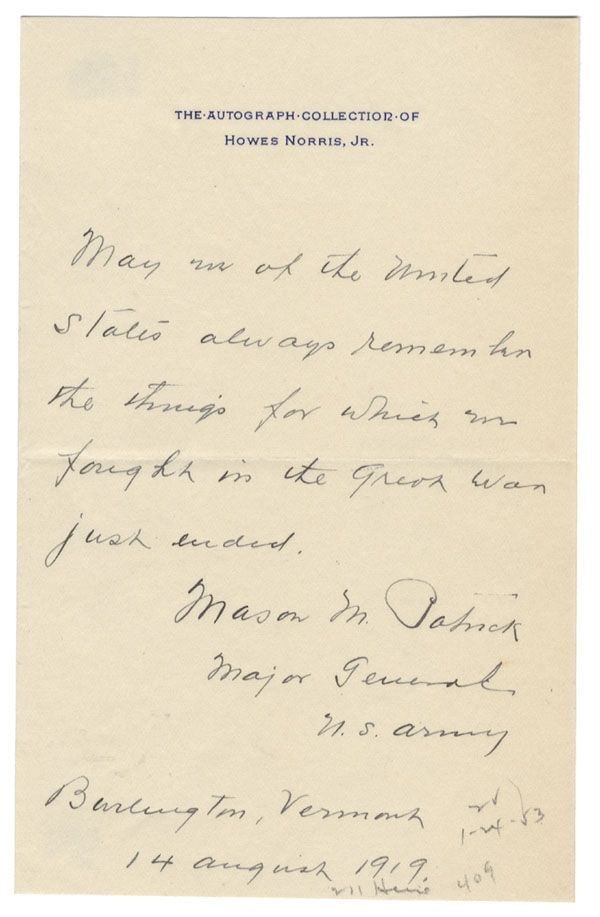 THE·AUTOGRAPH·COLLECTION·OF
HOWES NORRIS, JR.
May we of the United
States always remember
the things for which we
fought in the Great War
just ended.
Mason M. Patrick
Major General
U.S. Army
Burlington, Vermont
1-24-53
14 August 1919.
409